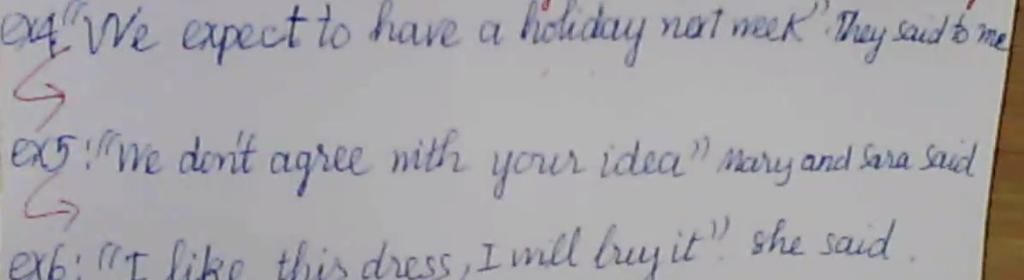 ex4 "We expect to have a holiday next week". They said to me
ex5: "We don't agree with your idea" Mary and Sara said
ex6: "I like this dress, I will buy it" she said.